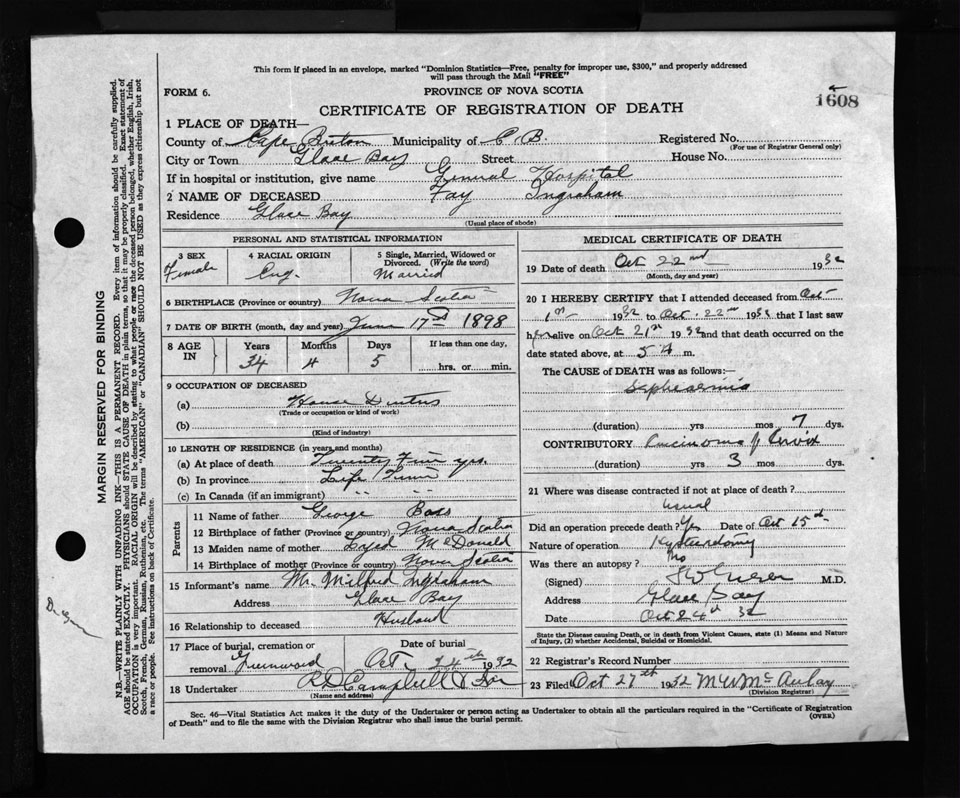 This form if placed in an envelope, marked "Dominion Statistics—Free, penalty for improper use, $300," and properly addressed
will pass through the Mail "FREE"
FORM 6.
PROVINCE OF NOVA SCOTIA
1608
CERTIFICATE OF REGISTRATION OF DEATH
1 PLACE OF DEATH—
County of Cape Breton Municipality of C.B. Registered No.
(For use of Registrar General only)
City or Town Glace Bay Street House No.
If in hospital or institution, give name General Hospital
2 NAME OF DECEASED Fay Ingraham
Residence Glace Bay
(Usual place of abode)
PERSONAL AND STATISTICAL INFORMATION
3 SEX
Female
4 RACIAL ORIGIN
Eng.
5 Single, Married, Widowed or
Divorced. (Write the word)
Married
6 BIRTHPLACE (Province or country) Nova Scotia
7 DATE OF BIRTH (month, day and year) June 17th 1898
8 AGE IN
Years Months Days If less than one day,
34 4 5 hrs. or min.
9 OCCUPATION OF DECEASED
(a) House Duties
(Trade or occupation or kind of work)
(b)
(Kind of industry)
10 LENGTH OF RESIDENCE (in years and months)
(a) At place of death Twenty yrs.
(b) In province Life Time
(c) In Canada (if an immigrant) " "
Parents
11 Name of father George Bass
12 Birthplace of father (Province or country) Nova Scotia
13 Maiden name of mother McDonald
14 Birthplace of mother (Province or country) Nova Scotia
15 Informant's name Mr. Milfred Ingraham
Address Glace Bay
16 Relationship to deceased Husband
17 Place of burial, cremation or Date of burial
removal Greenwood Oct 24th 1932
18 Undertaker R D Campbell & Son
(Name and address)
MEDICAL CERTIFICATE OF DEATH
19 Date of death Oct 22nd 1932
(Month, day and year)
20 I HEREBY CERTIFY that I attended deceased from Oct
1st 1932 to Oct. 22nd 1932 that I last saw
her alive on Oct 21st 1932 and that death occurred on
the date stated above, at 5 A m.
The CAUSE of DEATH was as follows:—
Sephcaemia
(duration) yrs mos 7 dys.
CONTRIBUTORY Carcinoma of Cervix
(duration) yrs 3 mos dys.
21 Where was disease contracted if not at place of death?
usual
Did an operation precede death? Yes Date of Oct 15th
Nature of operation Hysterectomy
Was there an autopsy? No
(Signed) M.D.
Address Glace Bay
Date Oct 24th 32
State the Disease causing Death, or in death from Violent Causes, state (1) Means and Nature
of Injury, (2) whether Accidental, Suicidal or Homicidal.
22 Registrar's Record Number
23 Filed Oct 27th 1932 McAulay
(Division Registrar)
Sec. 46—Vital Statistics Act makes it the duty of the Undertaker or person acting as Undertaker to obtain all the particulars required in the "Certificate of Registration
of Death" and to file the same with the Division Registrar who shall issue the burial permit.
(OVER)
MARGIN RESERVED FOR BINDING
N.B.—WRITE PLAINLY WITH UNFADING INK—THIS IS A PERMANENT RECORD. Every item of information should be carefully supplied.
AGE should be stated EXACTLY. PHYSICIANS should STATE CAUSE OF DEATH in plain terms, so that it may be properly classified. Exact statement of
OCCUPATION is very important. RACIAL ORIGIN will be described by stating to what people or race the deceased person belonged, whether English, Irish,
Scotch, French, German, Russian, Ruthenian, etc. The terms "AMERICAN" or "CANADIAN" SHOULD NOT BE USED as they express citizenship but not
a race or people. See instructions on back of Certificate.